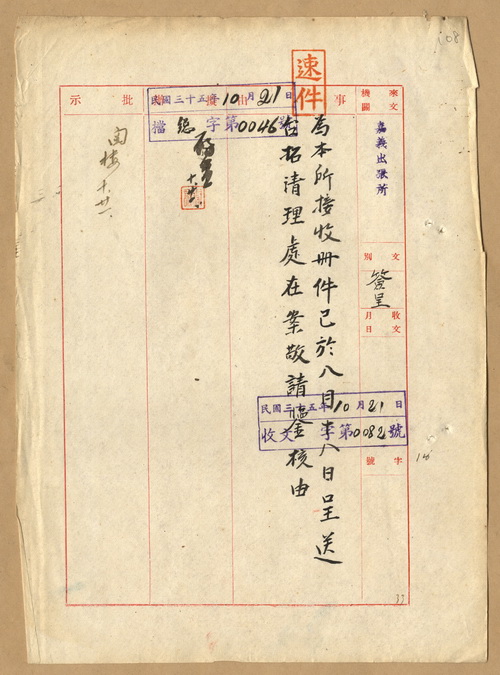 來文機關
嘉義出張所
文別
簽呈
收文
月日
字號
速件
事
為本所接收冊件已於八月十八日呈送
台拓清理處在案敬請鑒核由
民國三十五年10月21日
收文字第0082號
民國三十五年10月21日
檔總字第0046號
批示